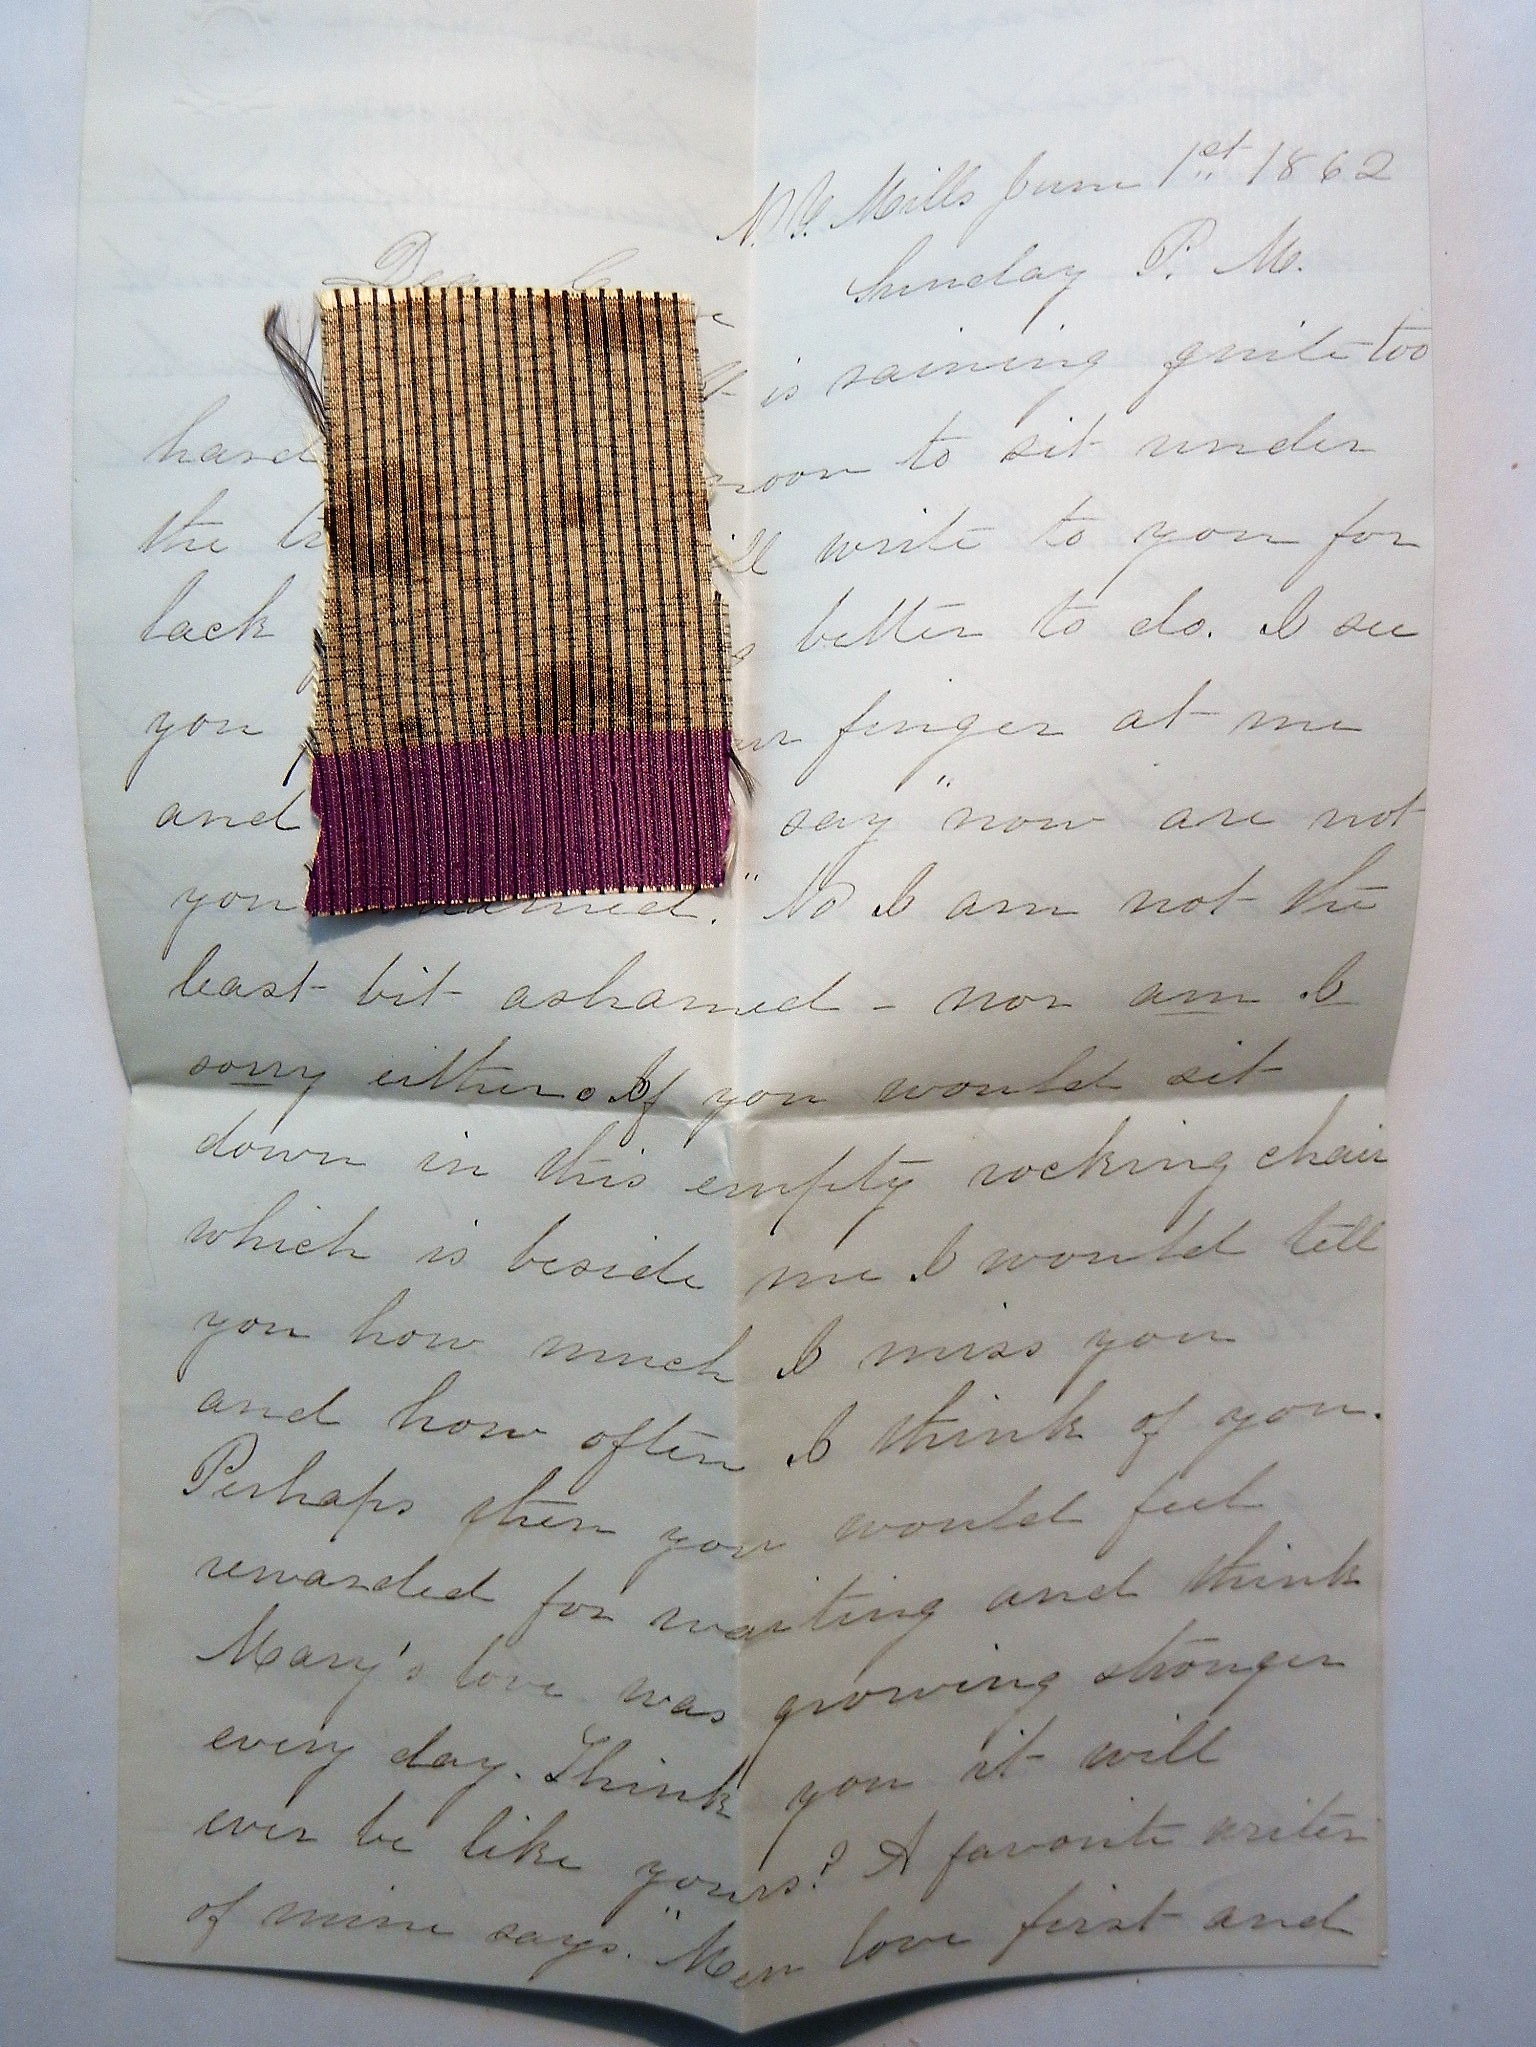 N. Y. Mills June 1st 1862
Sunday P. M.
Dear
is raining quite too
hard noon to sit under
the write to you for
lack better to do. I see
you finger at me
and say "now are not
you ashamed." No I am not the
least bit ashamed - nor am I
sorry either. If you would sit
down in this empty rocking chair
which is beside me I would tell
you how much I miss you
and how often I think of you.
Perhaps then you would feel
rewarded for waiting and think
Mary's love was growing stronger
every day. Think you it will
ever be like yours? A favorite writer
of mine says. "Men love first and